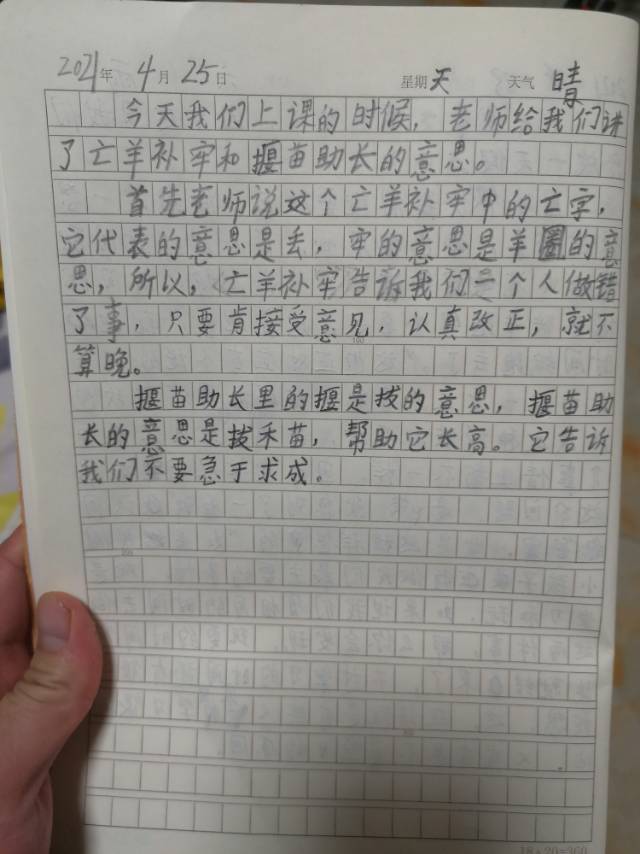 2021年 4月 25日 星期天 天气 晴
今天我们上课的时候，老师给我们讲
了亡羊补牢和揠苗助长的意思。
首先老师说这个亡羊补牢中的亡字，
它代表的意思是丢，牢的意思是羊圈的意
思，所以，亡羊补牢告诉我们一个人做错
了事，只要肯接受意见，认真改正，就不
算晚。
揠苗助长里的揠是拔的意思，揠苗助
长的意思是拔禾苗，帮助它长高。它告诉
我们不要急于求成。
18×20=360